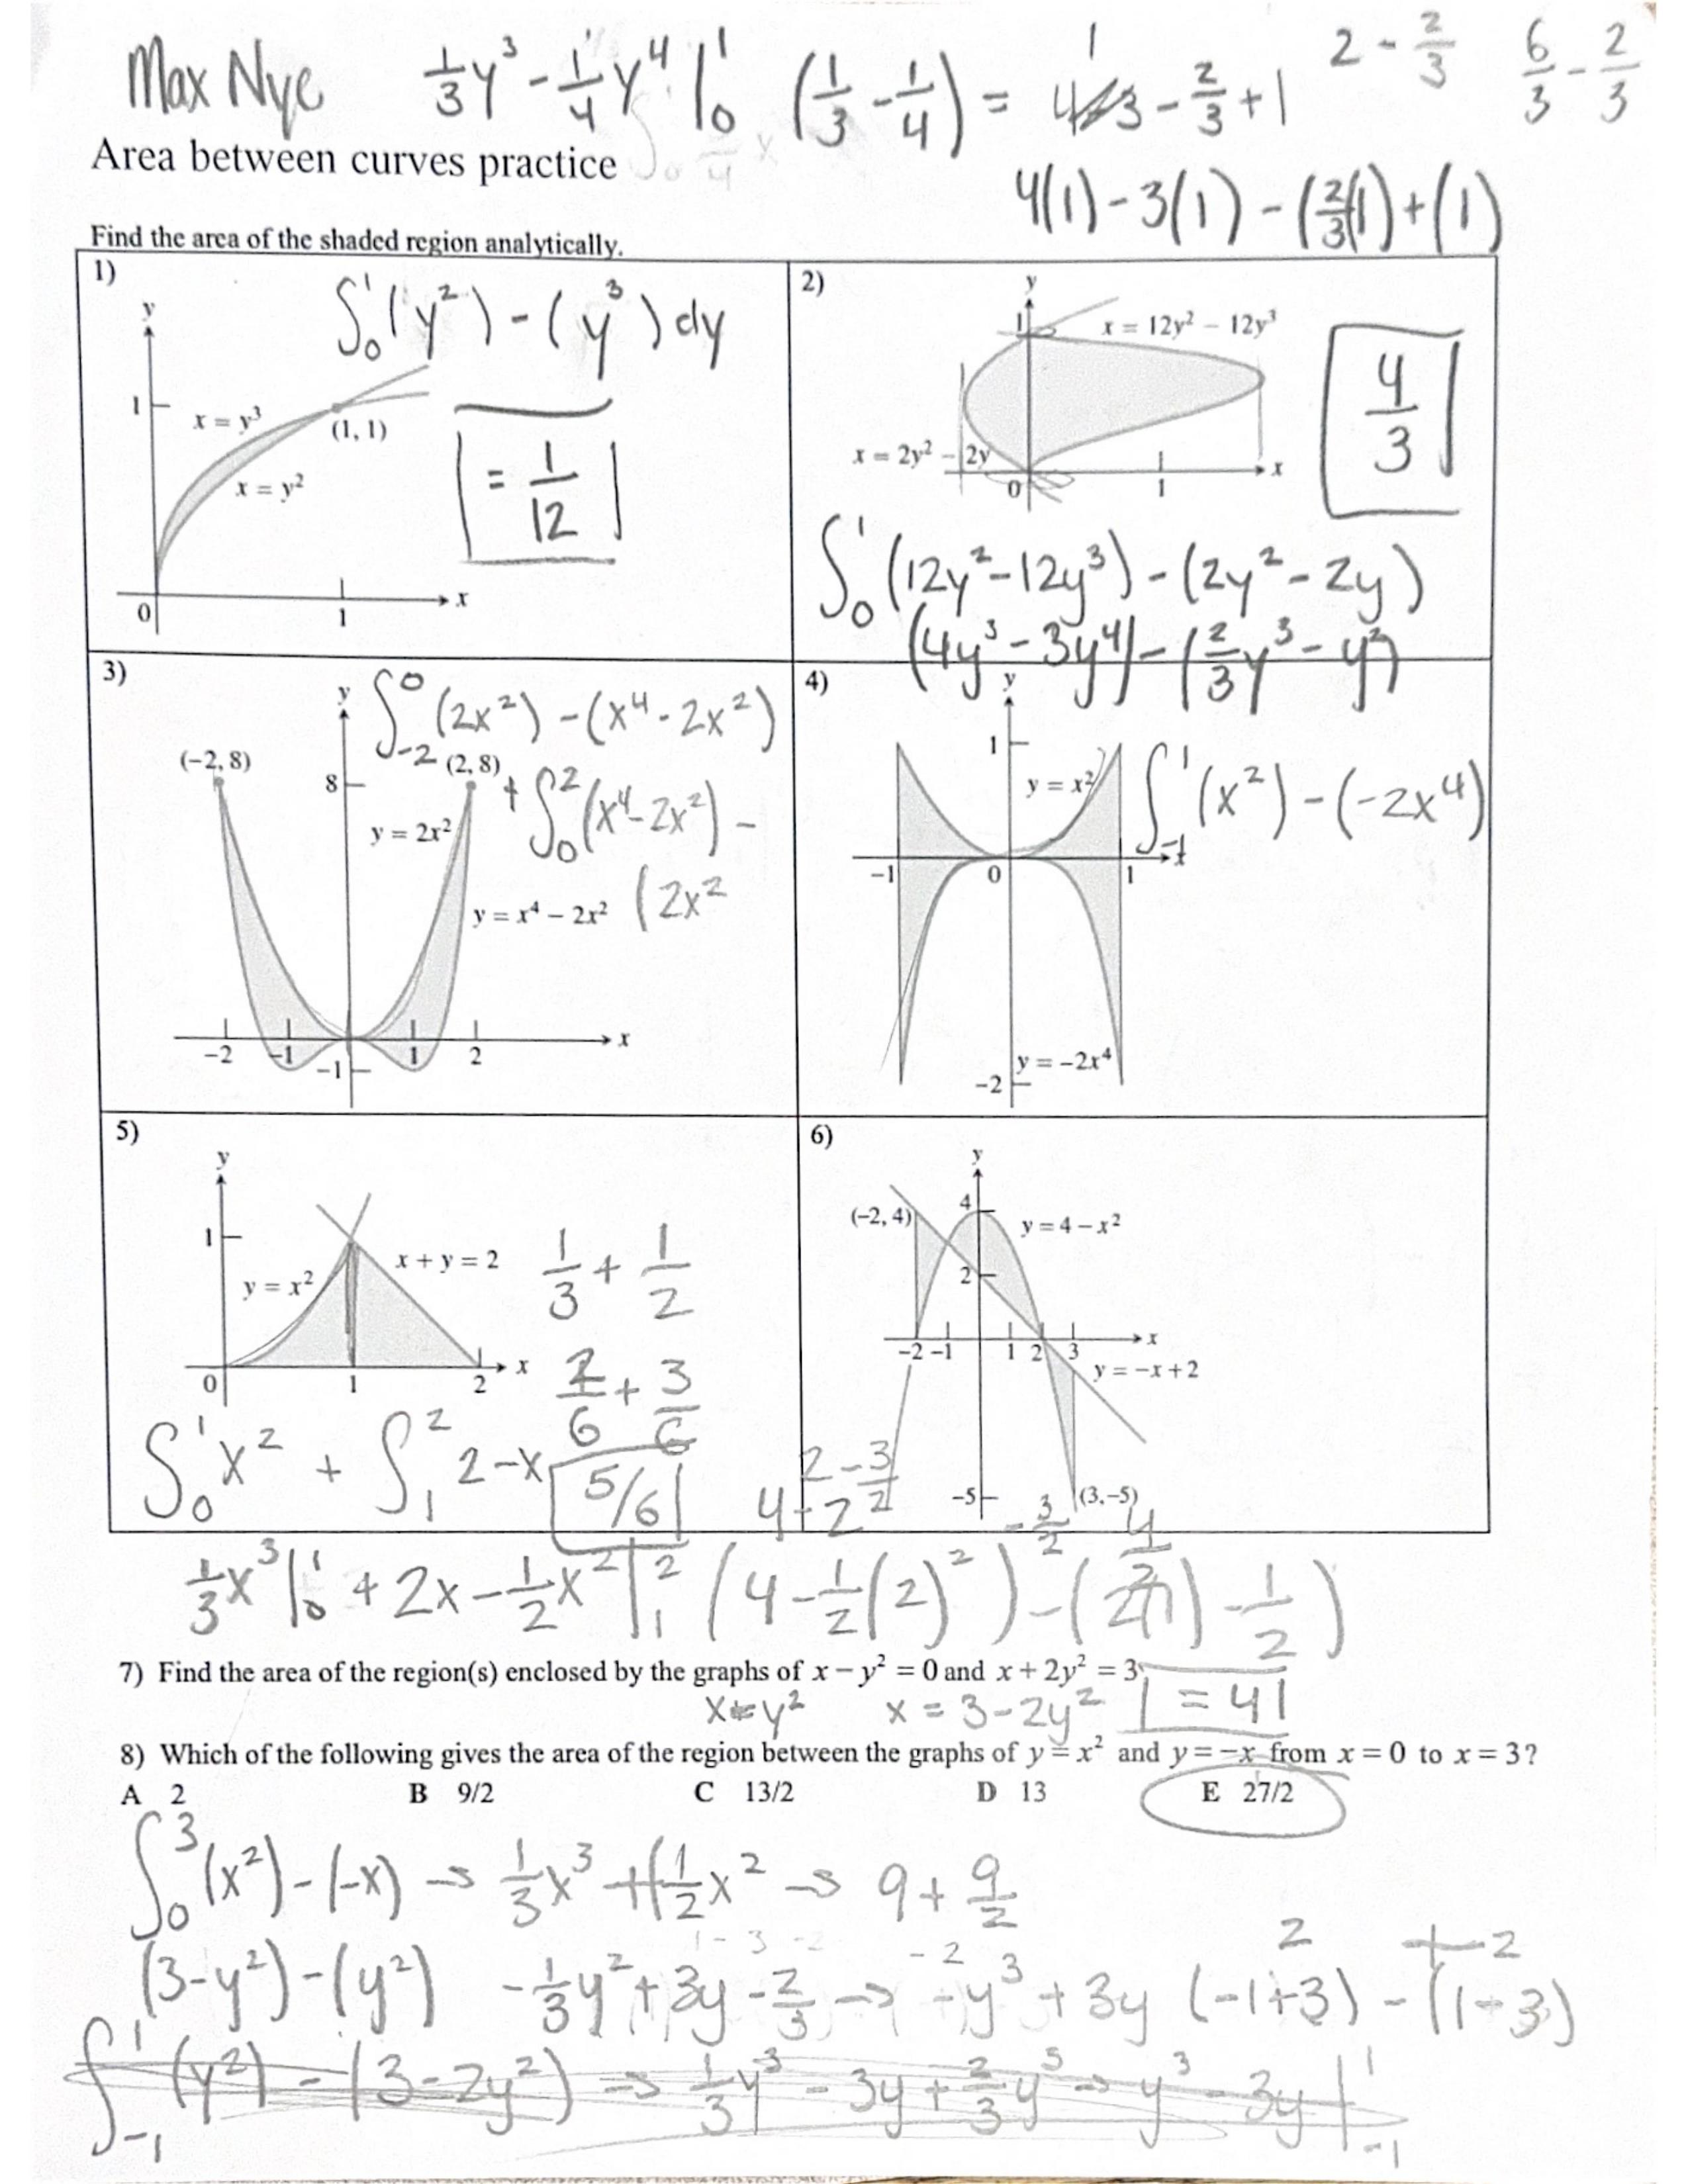 Max Nye
1/3 y³ - 1/4 y⁴ |₀¹ (1/3 - 1/4) =
- 2/3 + 1
2 - 2/3
6/3 - 2/3
Area between curves practice
4(1) - 3(1) - (2/3(1) + (1)
Find the area of the shaded region analytically.
1)
∫₀¹ (y²) - (y³) dy
y
1
x = y³
(1, 1)
x = y²
= 1/12
0
1
x
2)
y
1
x = 12y² – 12y³
4/3
x = 2y² – 2y
0
1
x
∫₀¹ (12y² - 12y³) - (2y² - 2y)
(4y³ - 3y⁴) - (2/3 y³ - y²)
3)
y
∫₋₂⁰ (2x²) - (x⁴ - 2x²)
(–2, 8)
8
(2, 8)
+ ∫₀² (x⁴ - 2x²) -
(2x²
y = 2x²
y = x⁴ – 2x²
–2
–1
–1
1
2
x
4)
y
1
y = x²
∫₋₁¹ (x²) - (-2x⁴)
–1
0
1
x
y = –2x⁴
–2
5)
y
1
y = x²
x + y = 2
1/3 + 1/2
2/6 + 3/6
0
1
2
x
∫₀¹ x² + ∫₁² 2 - x
5/6
6)
y
(–2, 4)
4
y = 4 – x²
2
–2 –1
1 2 3
x
y = –x + 2
–5
(3, –5)
2 - 3/2
4 - 2
- 3/2
1/3 x³ |₀¹ + 2x - 1/2 x² |₁² (4 - 1/2 (2)²) - (2(1) - 1/2)
7) Find the area of the region(s) enclosed by the graphs of x – y² = 0 and x + 2y² = 3.
x = y² x = 3 - 2y² = 4
8) Which of the following gives the area of the region between the graphs of y = x² and y = –x from x = 0 to x = 3?
A 2 B 9/2 C 13/2 D 13 E 27/2
∫₀³ (x²) - (-x) → 1/3 x³ + (1/2 x² → 9 + 9/2
(3 - y²) - (y²) - 1/3 y² + 3y - 2/3 → - y³ + 3y (-1 + 3) - (1 - 3)
2
-2
∫₋₁¹ (y²) - (3 - 2y²) → 1/3 y³ - 3y + 2/3 y³ → y³ - 3y |₋₁¹